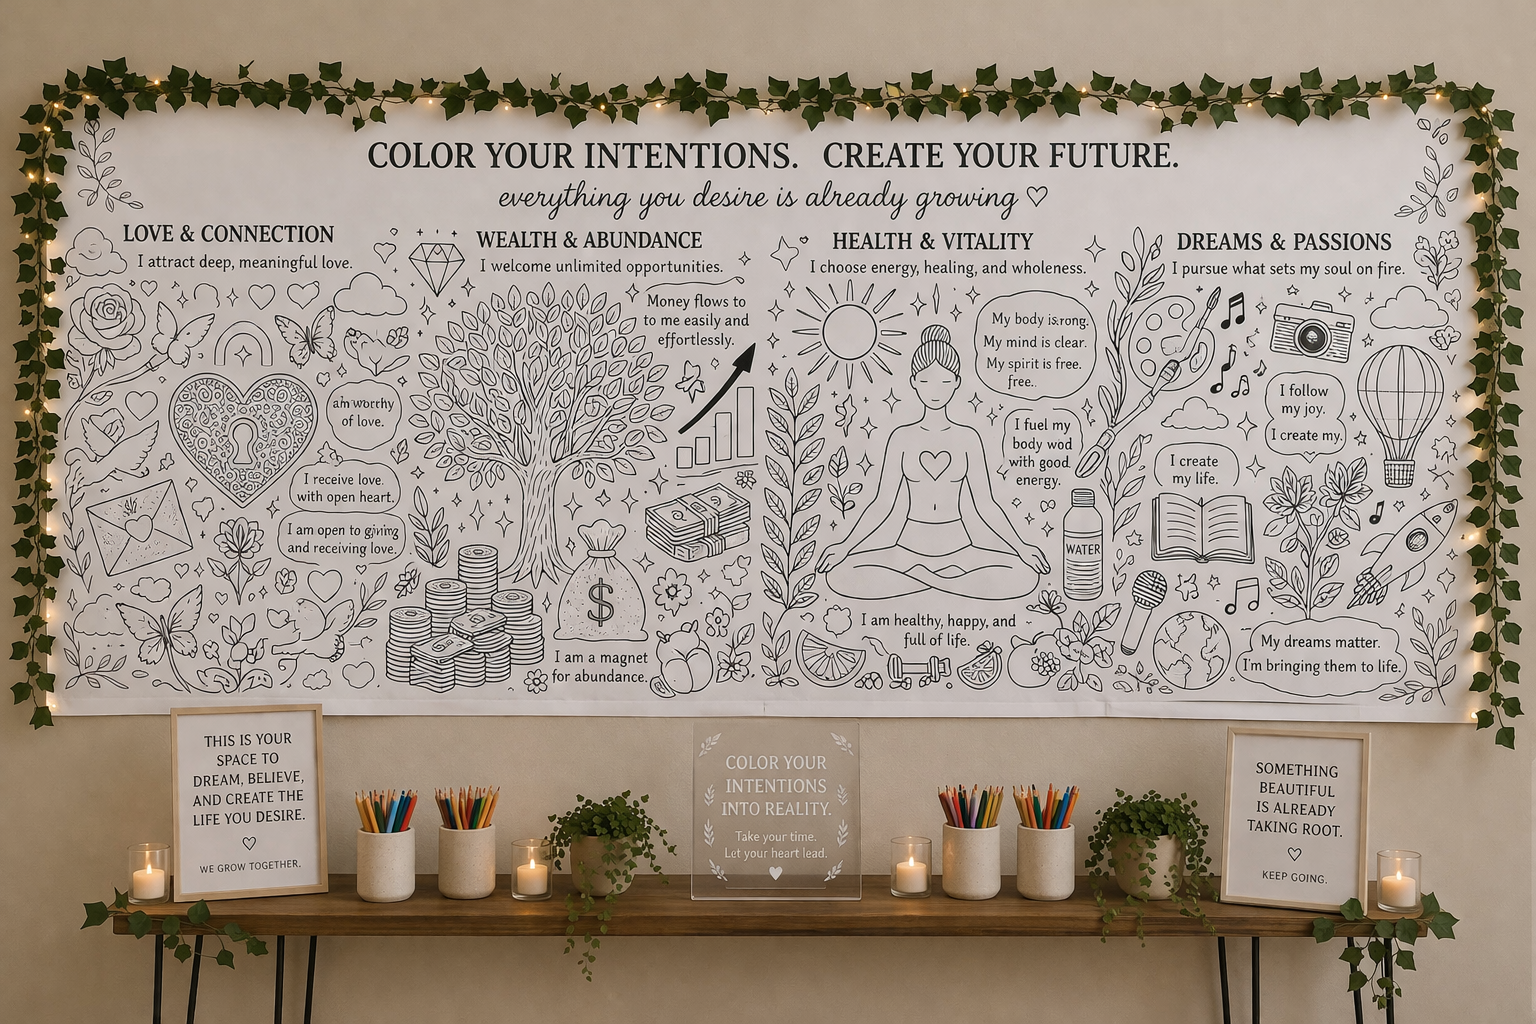 COLOR YOUR INTENTIONS. CREATE YOUR FUTURE.
everything you desire is already growing ♡
LOVE & CONNECTION
I attract deep, meaningful love.
am worthy
of love.
I receive love
with open heart.
I am open to giving
and receiving love.
WEALTH & ABUNDANCE
I welcome unlimited opportunities.
Money flows to
to me easily and
effortlessly.
$
I am a magnet
for abundance.
HEALTH & VITALITY
I choose energy, healing, and wholeness.
My body is:rong.
My mind is clear.
My spirit is free.
free..
I fuel my
body wod
with good
energy.
WATER
I am healthy, happy, and
full of life.
DREAMS & PASSIONS
I pursue what sets my soul on fire.
I follow
my joy.
I create my.
I create
my life.
My dreams matter.
I'm bringing them to life.
THIS IS YOUR
SPACE TO
DREAM, BELIEVE,
AND CREATE THE
LIFE YOU DESIRE.
♡
WE GROW TOGETHER.
COLOR YOUR
INTENTIONS
INTO REALITY.
Take your time.
Let your heart lead.
SOMETHING
BEAUTIFUL
IS ALREADY
TAKING ROOT.
♡
KEEP GOING.